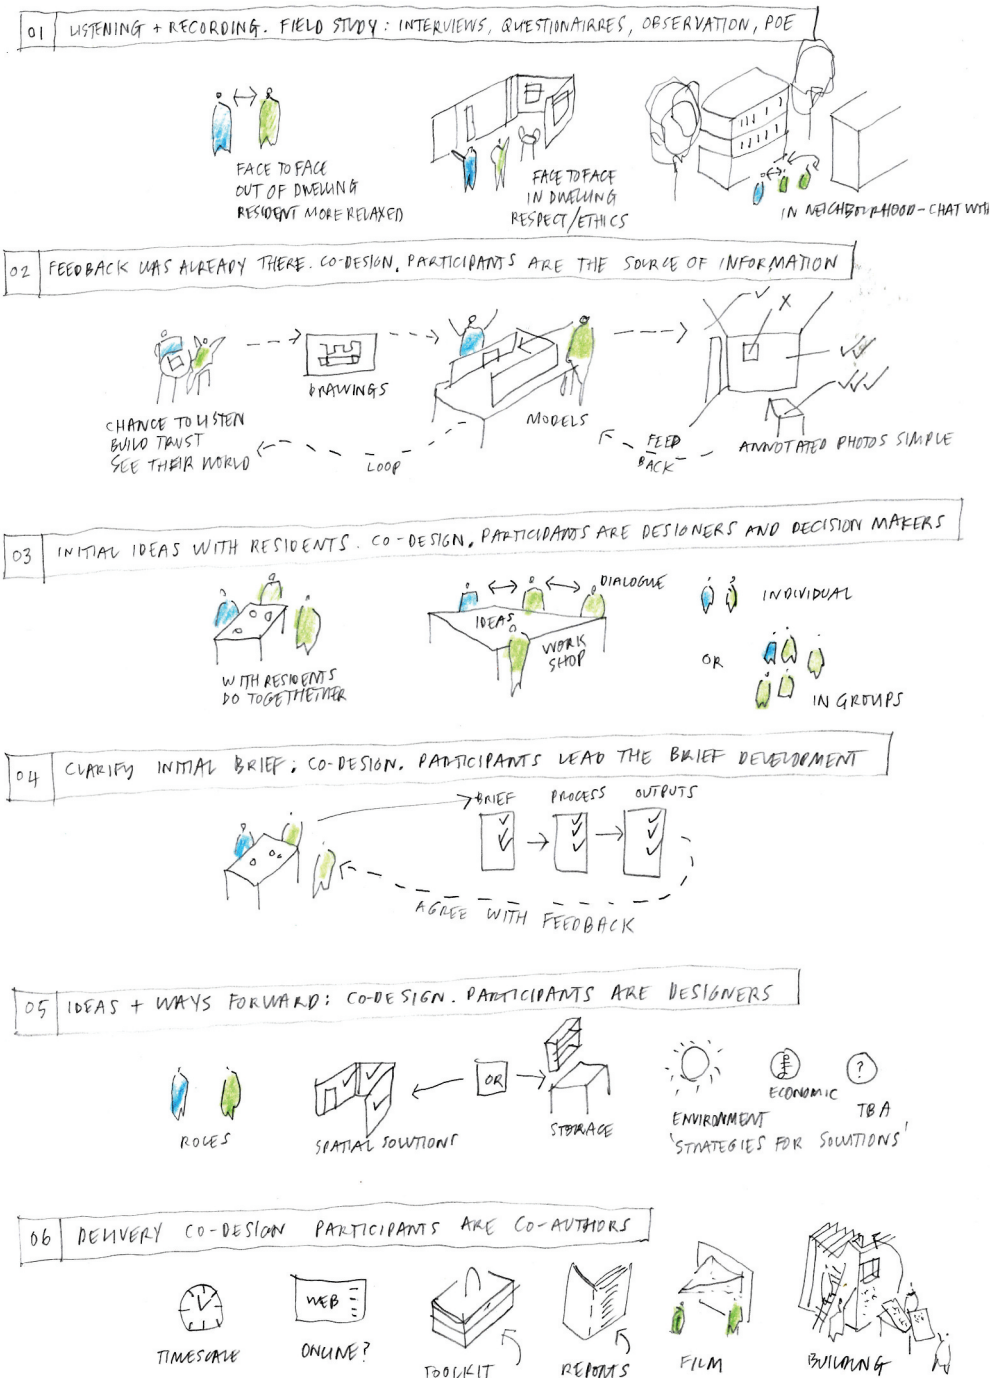 01 LISTENING + RECORDING. FIELD STUDY: INTERVIEWS, QUESTIONAIRRES, OBSERVATION, POE
FACE TO FACE
OUT OF DWELLING
RESIDENT MORE RELAXED
FACE TO FACE
IN DWELLING
RESPECT/ETHICS
IN NEIGHBOURHOOD - CHAT WITH
02 FEEDBACK WAS ALREADY THERE. CO-DESIGN. PARTICIPANTS ARE THE SOURCE OF INFORMATION
CHANCE TO LISTEN
BUILD TRUST
SEE THEIR WORLD
DRAWINGS
LOOP
MODELS
FEED
BACK
X
ANNOTATED PHOTOS SIMPLE
03 INITIAL IDEAS WITH RESIDENTS. CO-DESIGN. PARTICIPANTS ARE DESIGNERS AND DECISION MAKERS
WITH RESIDENTS
DO TOGETHETHER
IDEAS
DIALOGUE
WORK
SHOP
INDIVIDUAL
OR
IN GROUPS
04 CLARIFY INITIAL BRIEF; CO-DESIGN. PARTICIPANTS LEAD THE BRIEF DEVELOPMENT
BRIEF PROCESS OUTPUTS
AGREE WITH FEEDBACK
05 IDEAS + WAYS FORWARD: CO-DESIGN. PARTICIPANTS ARE DESIGNERS
ROLES
SPATIAL SOLUTIONS
OR
STORAGE
ENVIRONMENT
£
ECONOMIC
?
TBA
'STRATEGIES FOR SOLUTIONS'
06 DELIVERY CO-DESIGN PARTICIPANTS ARE CO-AUTHORS
TIMESCALE
WEB
ONLINE?
TOOLKIT
REPORTS
FILM
BUILDING